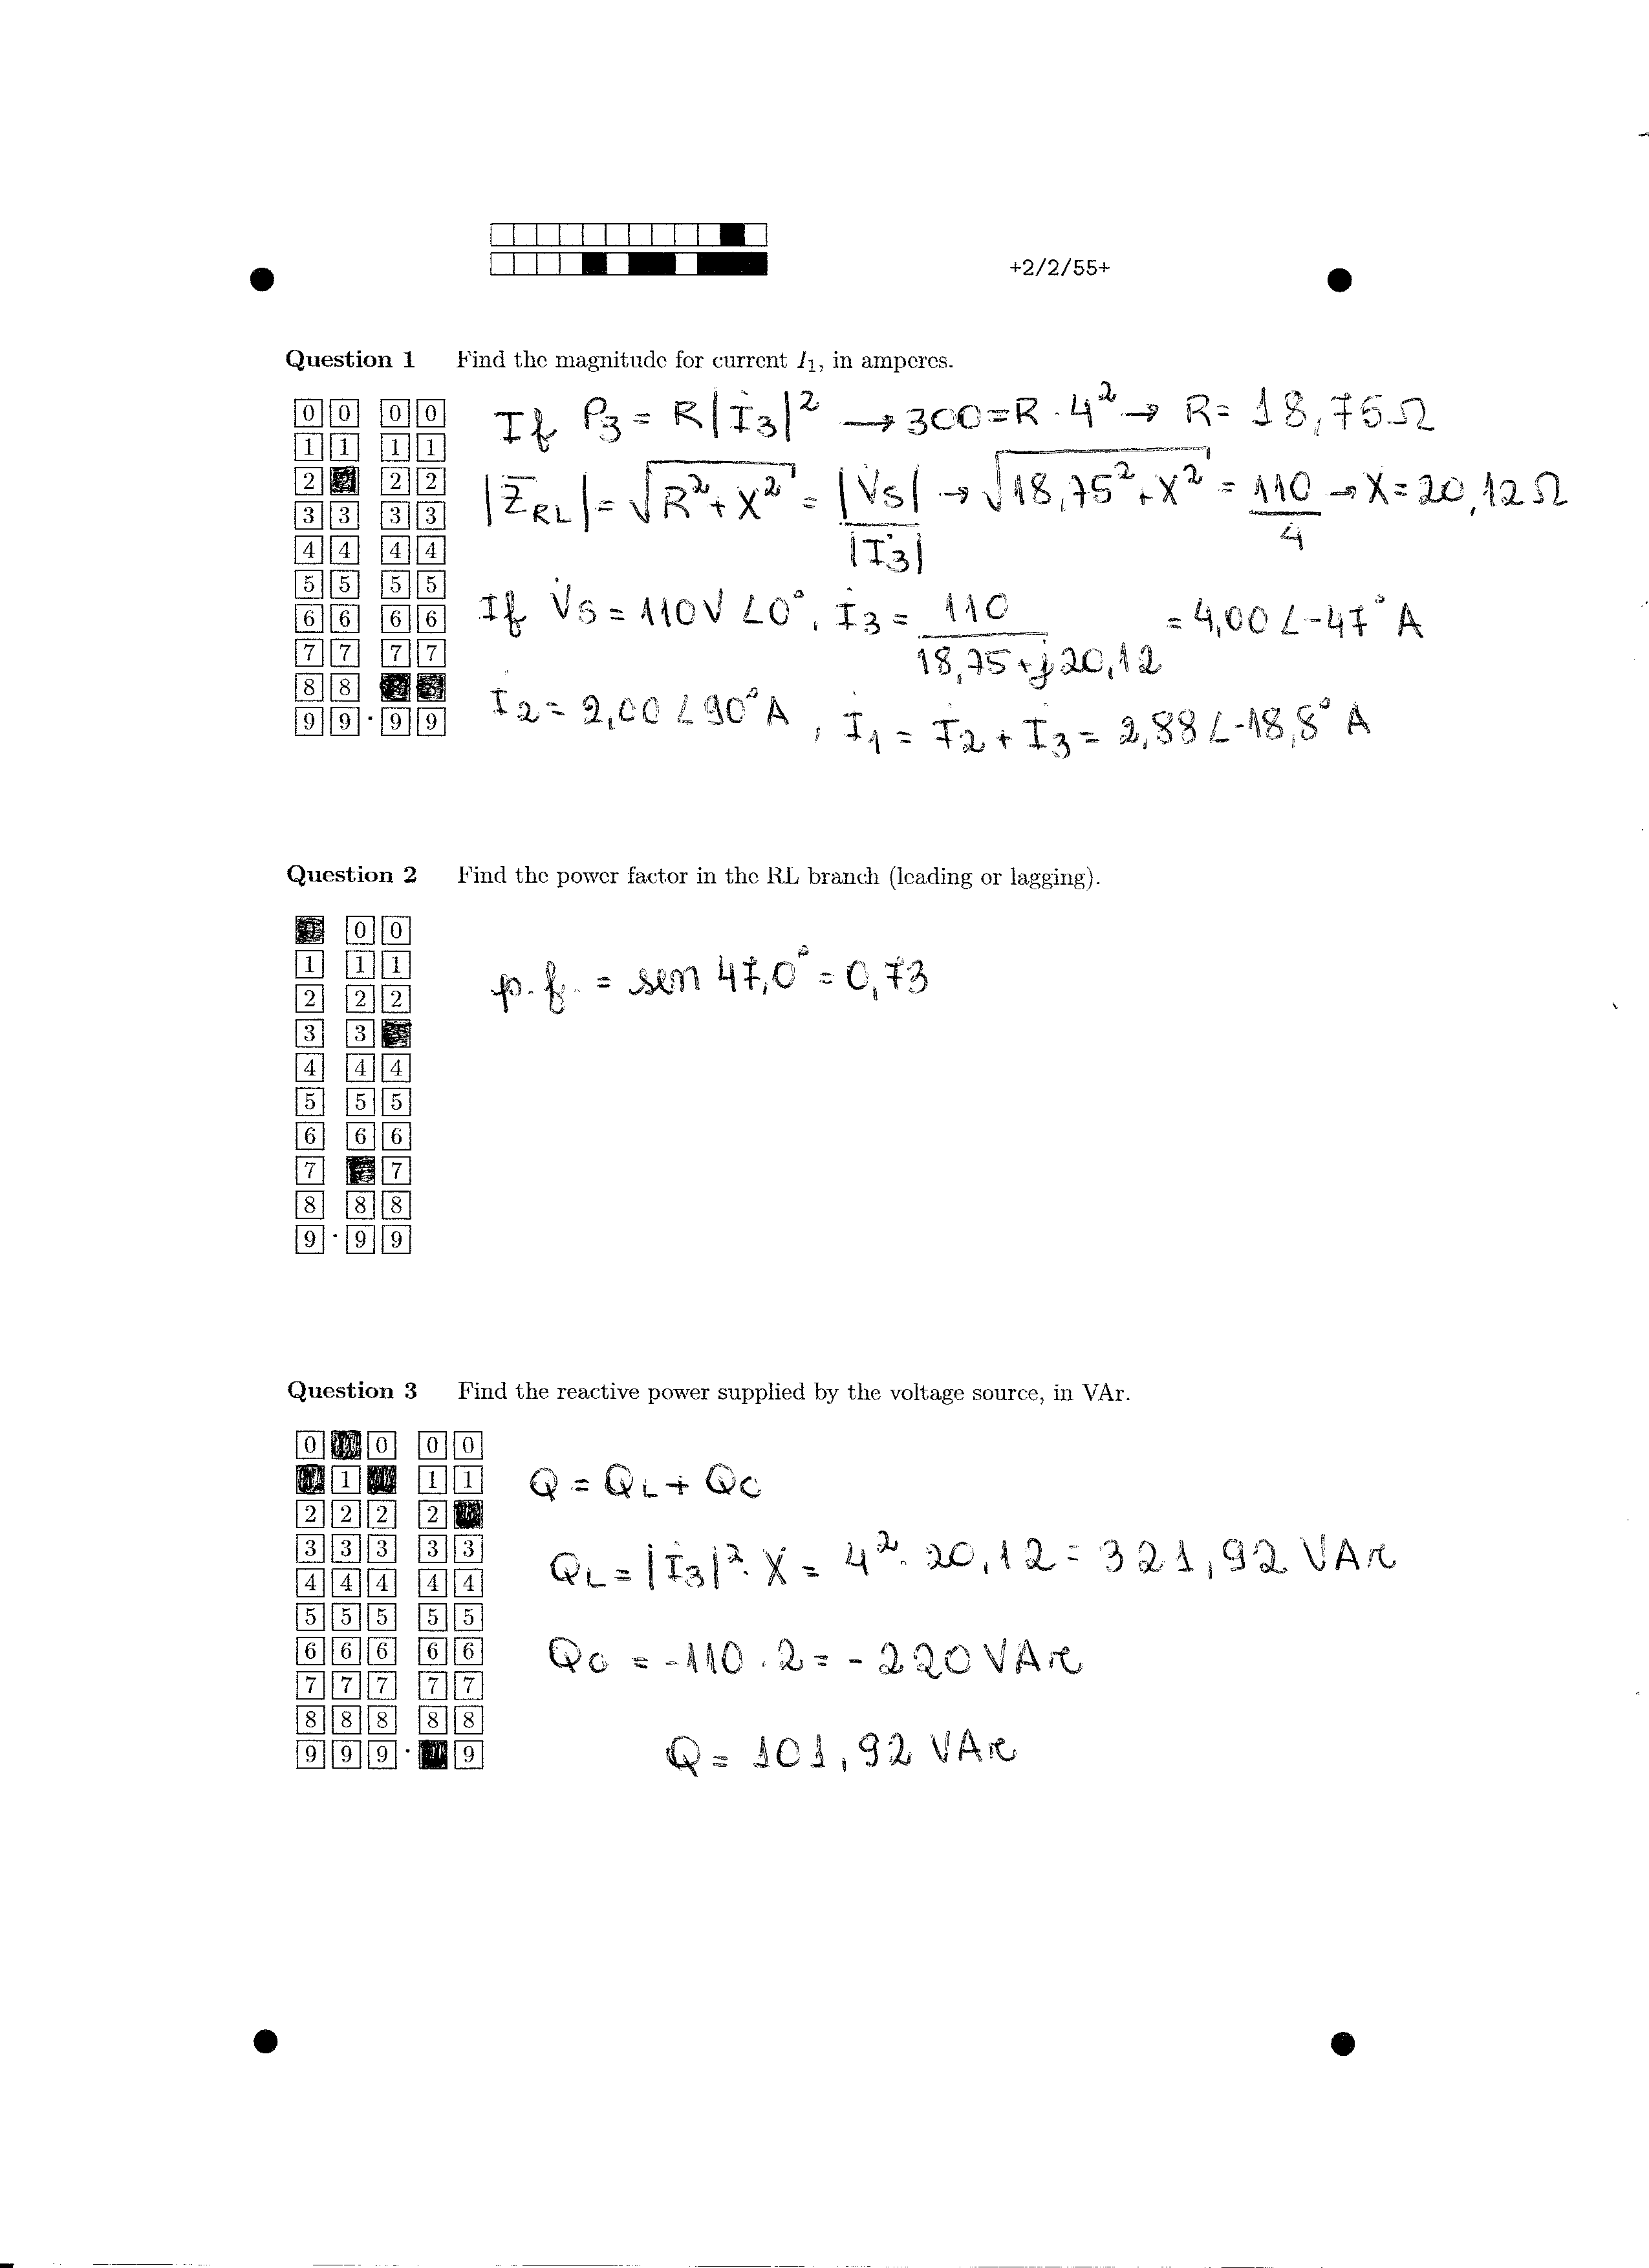 +2/2/55+
Question 1 Find the magnitude for current I₁, in amperes.
0 0 0 0
1 1 1 1
2 2 2
3 3 3 3
4 4 4 4
5 5 5 5
6 6 6 6
7 7 7 7
8 8
9 9 . 9 9
If P3 = R|İ3|² → 300 = R · 4² → R = 18,75 Ω
|Z̅RL| = √(R² + X²) = |V̇s| / |İ3| → √(18,75² + X²) = 110/4 → X = 20,12 Ω
If V̇s = 110V ∠0°, İ3 = 110 / (18,75 + j20,12) = 4,00 ∠-47° A
İ2 = 2,00 ∠90° A , İ1 = İ2 + İ3 = 2,88 ∠-18,8° A
Question 2 Find the power factor in the RL branch (leading or lagging).
0 0
1 1 1
2 2 2
3 3
4 4 4
5 5 5
6 6 6
7 7
8 8 8
9 . 9 9
p.f. = sen 47,0° = 0,73
Question 3 Find the reactive power supplied by the voltage source, in VAr.
0 0 0 0
1 1 1
2 2 2 2
3 3 3 3 3
4 4 4 4 4
5 5 5 5 5
6 6 6 6 6
7 7 7 7 7
8 8 8 8 8
9 9 9 . 9
Q = QL + QC
QL = |İ3|² · X = 4² · 20,12 = 321,92 VAr
QC = -110 · 2 = -220 VAr
Q = 101,92 VAr